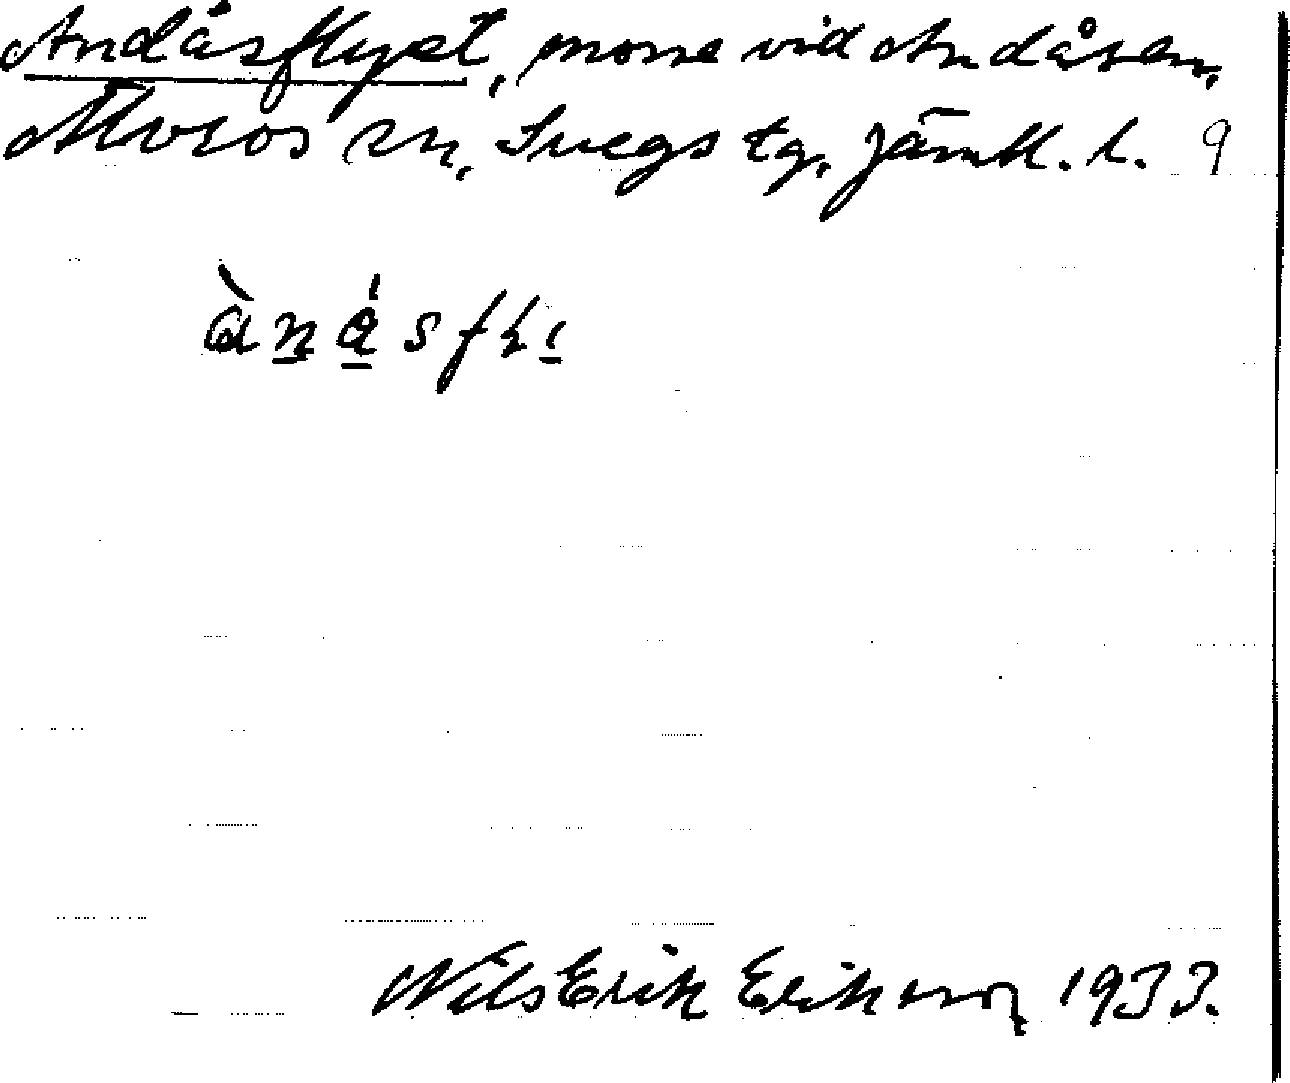 Andåsflyet, mosse vid Andåsen,
Älvros sn, Svegs tg, Jämtl. l. 9
Nils Erik Eriksson 1933.